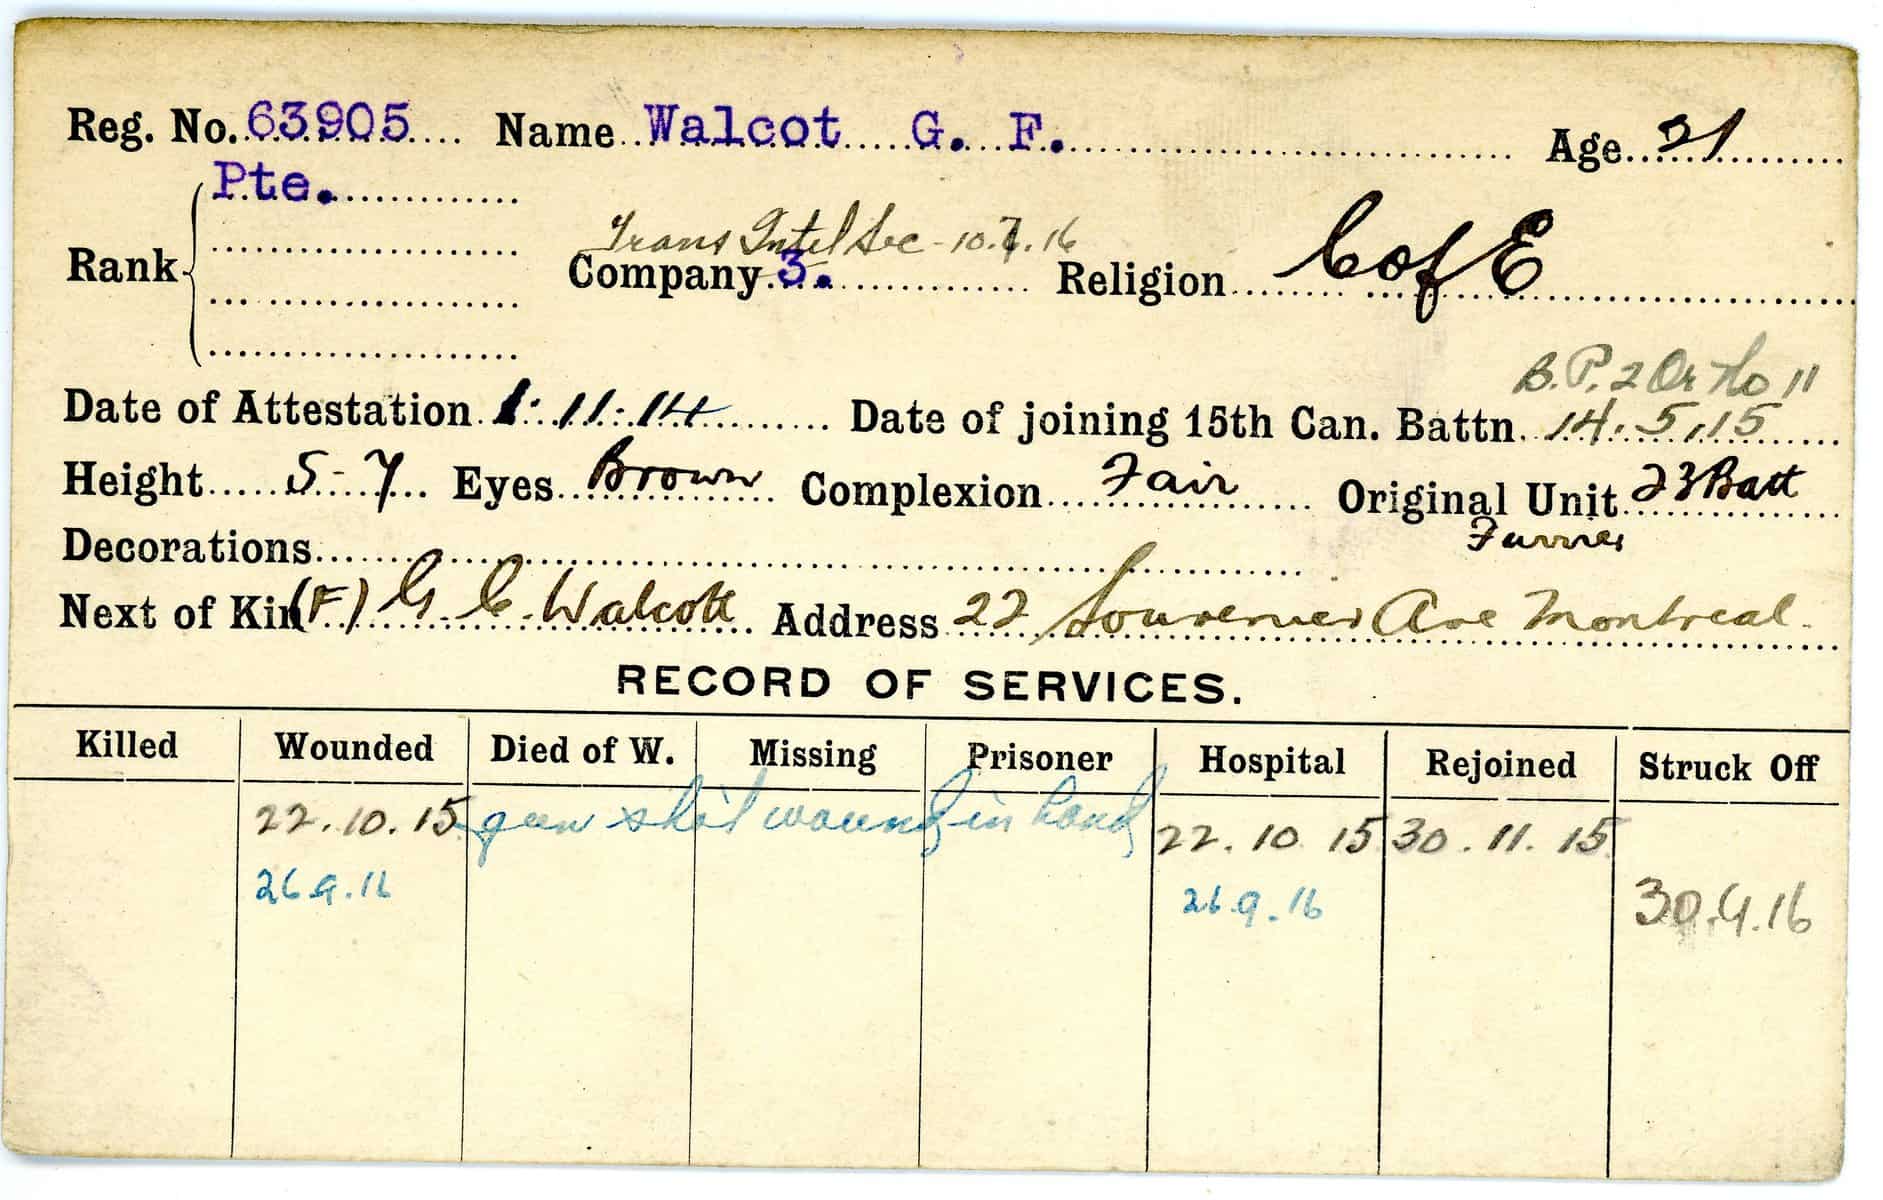 Reg. No. 63905 Name Walcot G. F. Age 21
Pte.
Trans Intel Sec - 10.7.16
Rank Company 3. Religion C of E
B. P. 2 Or No 11
Date of Attestation 1.11.14 Date of joining 15th Can. Battn. 14.5.15
Height 5-7 Eyes Brown Complexion Fair Original Unit 23 Batt
Decorations Furrier
Next of Kin (F) G. C. Walcott Address 22 Ave Montreal.
RECORD OF SERVICES.
Killed Wounded Died of W. Missing Prisoner Hospital Rejoined Struck Off
22.10.15 gun shot wound in hand 22.10 15 30.11.15
26.9.16 26.9.16 30.9.16